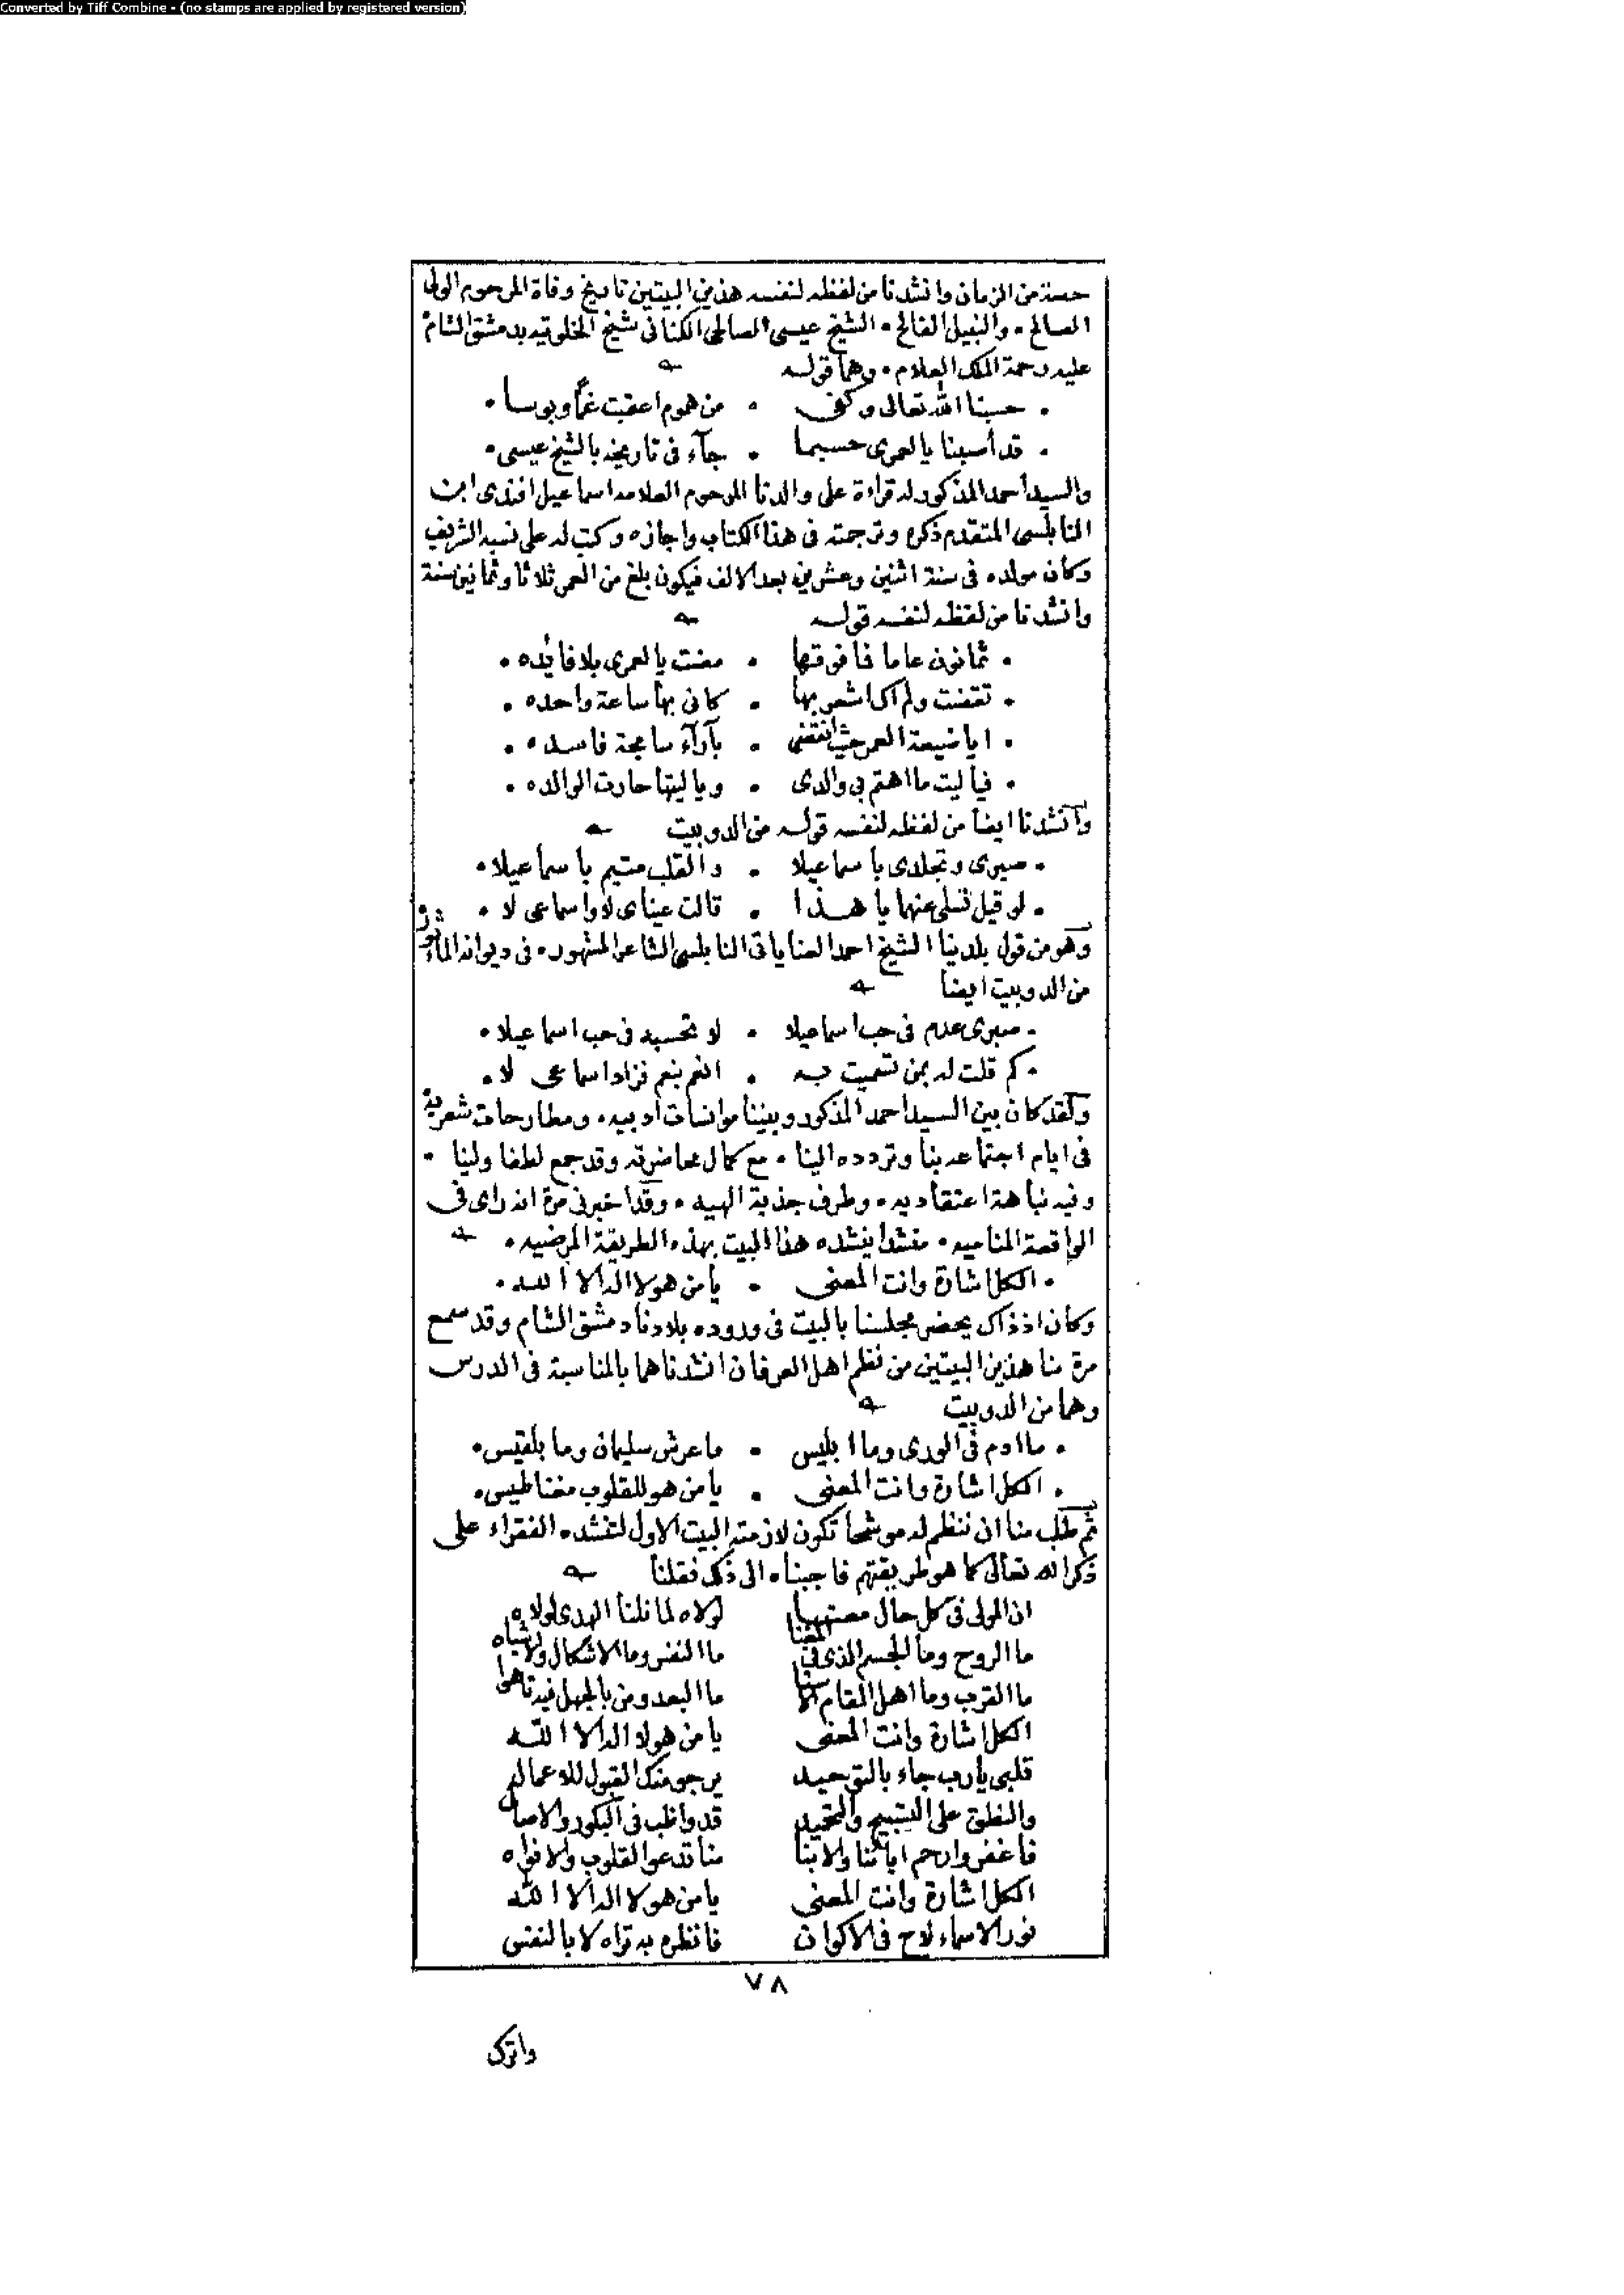 Converted by Tiff Combine - (no stamps are applied by registered version)
حصة من الزمان وانشدنا من لفظه لنفسه هذين البيتين تاريخ وفاة المرحوم الولى
الصالح • والنبيل الفالح • الشيخ عيسى الصالحى الكنانى شيخ الخلوتيه بدمشق الشام
عليه رحمة الملك العلام • وهما قوله
• حسبنا الله تعالى وكفى • من هموم اعقبت غمًا وبوسا •
• قد أسينا يا لعمرى حسبما • جآء فى تاريخه بالشيخ عيسى •
والسيد أحمد المذكور له قراءة على والدنا المرحوم العلامه اسماعيل افندى ابن
النابلسى المتقدم ذكره وترجمته فى هذا الكتاب واجازه وكتب له على نسبه الشريف
وكان مولده فى سنة اثنين وعشرين بعد الالف فيكون بلغ من العمر ثلاثا وثمانين سنة
وانشدنا من لفظه لنفسه قوله
• ثمانون عاما فما فوقها • مضت يا لعمرى بلا فائده •
• تقضت ولم اك اشعر بها • كانى بها ساعة واحده •
• ايا ضيعة العمر حيث انقضى • بآرآء سامجة فاسده •
• فيا ليت ما اهتم بى والدى • ويا ليتها حارت الوالده •
وانشدنا ايضا من لفظه لنفسه قوله من الدوبيت
• صبرى وتجلدى با سماعيلا • والقلب متيم با سماعيلا •
• لو قيل تسلى عنهما يا هذا • قالت عيناى لا واسماعى لا •
وهو من قول بلدينا الشيخ احمد العناياتى النابلسى الشاعر المشهور • فى ديوانه المأثور
من الدوبيت ايضا
• صبرى عدم فى حب اسماعيلا • لو تحسبه فى حب اسما عيلا •
• كم قلت له بمن تسميت به • انعم بنعم فزاد اسماعى لا •
ولقد كان بين السيد احمد المذكور وبيننا موانسات أدبيه • ومطارحات شعرية
فى ايام اجتماعه بنا وتردده الينا • مع كمال محاضرته وقد جمع لطفا ولينا •
وفيه نباهة اعتقاديه • وطرف جذبة الهيه • وقد اخبرنى مرة انه راى فى
الواقعة المناميه • منشدا ينشده هذا البيت بهذه الطريقة المرضيه •
• الكل اشارة وانت المعنى • يا من هو لا اله الا الله •
وكان اذ ذاك يحضر مجلسنا بالبيت فى وروده بلادنا دمشق الشام وقد سمع
مرة منا هذين البيتين من نظم اهل العرفان انشدناهما بالمناسبة فى الدرس
وهما من الدوبيت
• ما ادم فى الورى وما ابليس • ما عرش سليمان وما بلقيس •
• الكل اشارة وانت المعنى • يا من هو للقلوب مغناطيس •
ثم طلب منا ان ننظم له موشحا تكون لازمته البيت الاول لتنشده الفقراء على
ذكر الله تعالى كما هو طريقتهم فاجبناه الى ذلك فقلنا
ان المولى فى كل حال لولاه لما نلنا الهدى لولاه
ما الروح وما الجسم الذى ما النفس وما الاشكال والاشباه
ما القرب وما اهل المقام الاسنا ما البعد ومن بالجهل فيه تاهوا
الكل اشارة وانت المعنى يا من هو لا اله الا الله
قلبى يا رب جاء بالتوحيد يرجو منك القبول للاعمال
والنطق على التسبيح والتحميد قد واظب فى البكور والاصال
فاغفر وارحم ابائنا والابنا منا تدعو القلوب والافواه
الكل اشارة وانت المعنى يا من هو لا اله الا الله
نور الاسماء لاح فى الاكوان فانظره به تراه لا بالنفس
٧٨
واترك